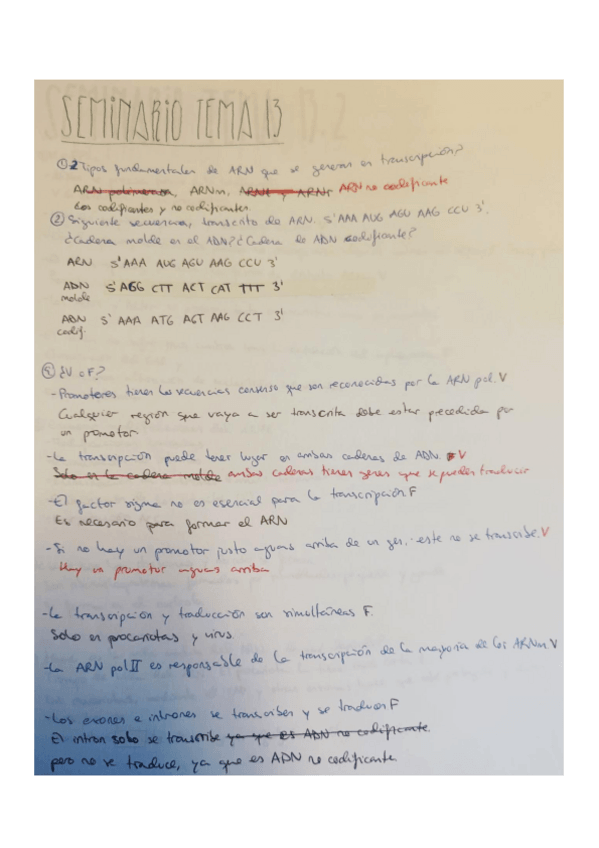 SEMINARIO TEMA 13
① 2 Tipos fundamentales de ARN que se generan en transcripción?
ARN polimerasa, ARNm, ARNt y ARNr ARN no codificante
Los codificantes y no codificantes.
② Siguiente secuencia, transcrito de ARN. 5' AAA AUG AGU AAG CCU 3'.
¿Cadena molde en el ADN? ¿Cadena de ADN codificante?
ARN 5' AAA AUG AGU AAG CCU 3'
ADN molde 5' AGG CTT ACT CAT TTT 3'
ADN codif. 5' AAA ATG AGT AAG CCT 3'
④ ¿V o F?
- Promotores tienen las secuencias consenso que son reconocidas por la ARN pol. V
Cualquier región que vaya a ser transcrita debe estar precedida por
un promotor.
- La transcripción puede tener lugar en ambas cadenas de ADN. F V
Solo en la cadena molde ambas cadenas tienen genes que se pueden traducir
- El factor sigma no es esencial para la transcripción. F
Es necesario para formar el ARN
- Si no hay un promotor justo aguas arriba de un gen, este no se transcribe. V
Hay un promotor aguas arriba
- La transcripción y traducción son simultáneas F.
Solo en procariotas y virus.
- La ARN pol II es responsable de la transcripción de la mayoría de los ARNm. V
- Los exones e intrones se transcriben y se traducen F
El intron solo se transcribe ya que es ADN no codificante.
pero no se traduce, ya que es ADN no codificante